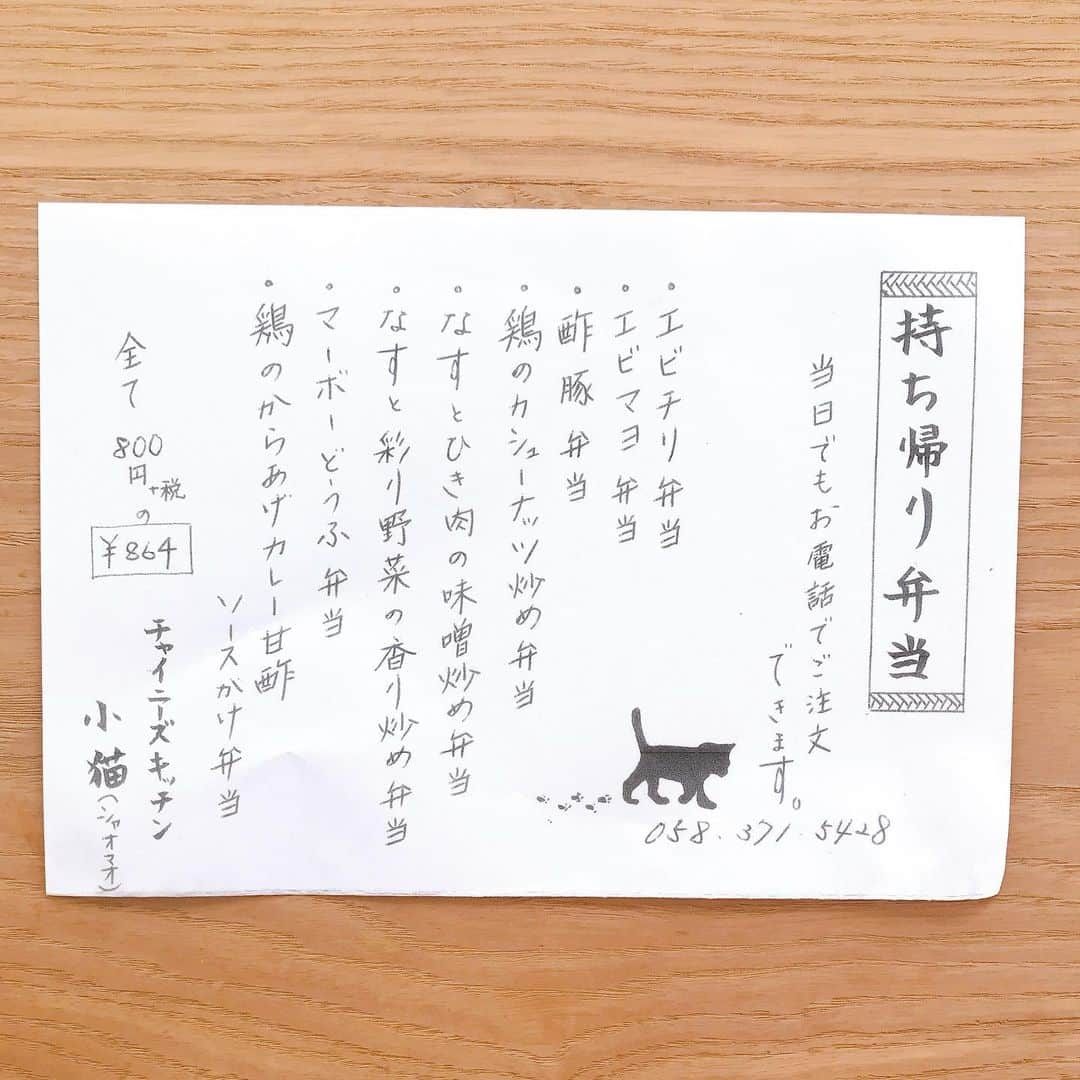 持ち帰り弁当
当日でもお電話でご注文
できます。
058.371.5428
・エビチリ弁当
・エビマヨ弁当
・酢豚弁当
・鶏のカシューナッツ炒め弁当
・なすとひき肉の味噌炒め弁当
・なすと彩り野菜の香り炒め弁当
・マーボーどうふ弁当
・鶏のからあげカレー甘酢
ソースかけ弁当
全て800円+税の
¥864
チャイニーズキッチン
小猫(シャオマオ)